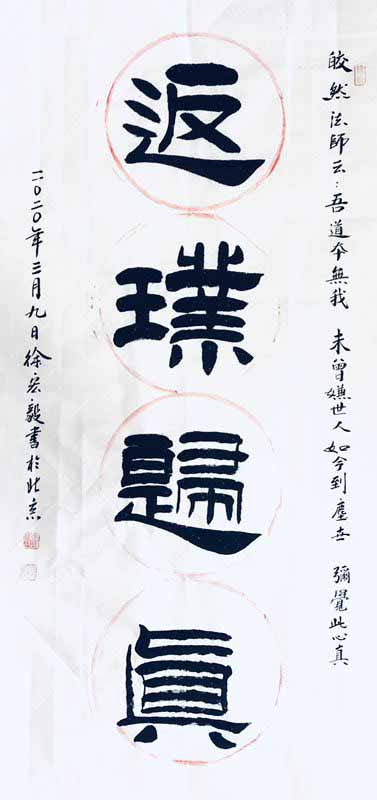 皎然法師云：吾道夲無我 未曾嫌世人 如今到塵世 彌覺此心真
返璞歸眞
二〇二〇年三月九日徐宏毅書於北京